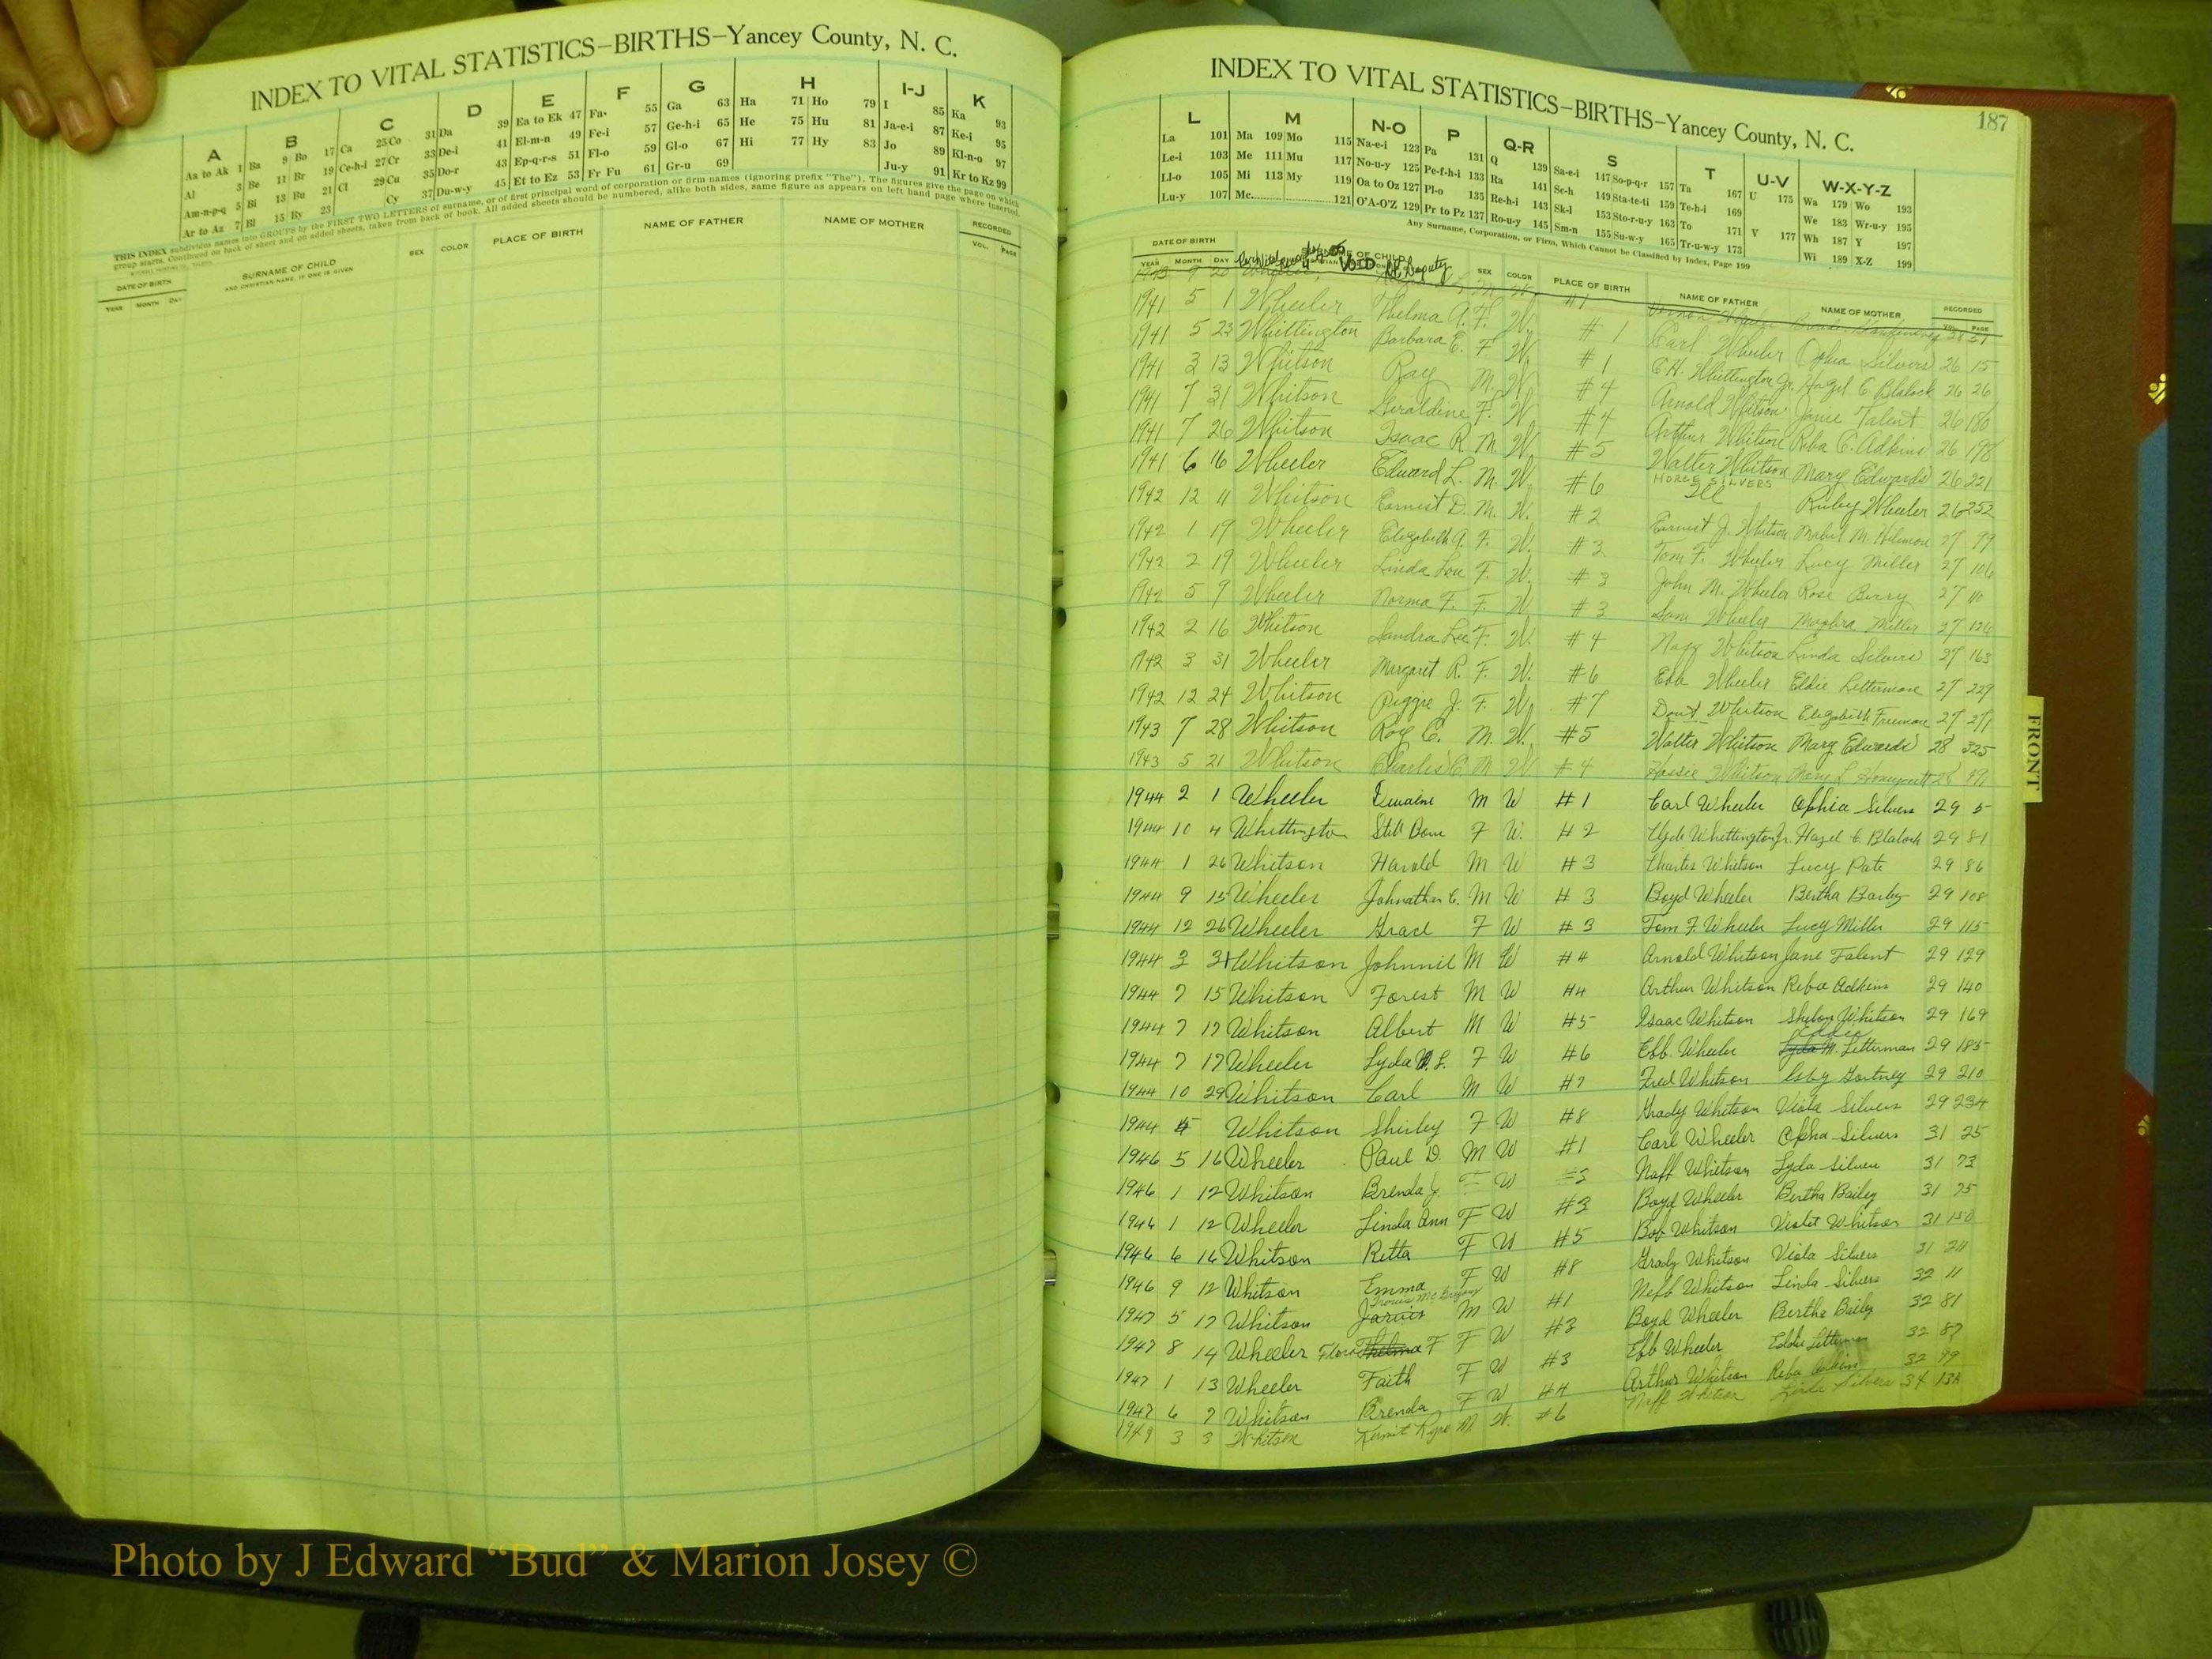 INDEX TO VITAL STATISTICS—BIRTHS—Yancey County, N. C.
A B C D E F G H I-J K
Aa to Ak 1 Ba 9 Bo 17 Ca 25 Co 31 Da 39 Ea to Ek 47 Fa- 55 Ga 63 Ha 71 Ho 79 I 85 Ka 93
Al 3 Be 11 Br 19 Ce-h-i 27 Cr 33 De-i 41 El-m-n 49 Fe-i 57 Ge-h-i 65 He 75 Hu 81 Ja-e-i 87 Ke-i 95
Am-n-p-q 5 Bi 13 Bu 21 Cl 29 Cu 35 Do-r 43 Ep-q-r-s 51 Fl-o 59 Gl-o 67 Hi 77 Hy 83 Jo 89 Kl-n-o 97
Ar to Az 7 Bl 15 By 23 Cy 37 Du-w-y 45 Et to Ez 53 Fr Fu 61 Gr-u 69 Ju-y 91 Kr to Kz 99
THIS INDEX subdivides names into GROUPS by the FIRST TWO LETTERS of surname, or of first principal word of corporation or firm names (ignoring prefix "The"). The figures give the page on which
group starts. Continued on back of sheet and on added sheets, taken from back of book. All added sheets should be numbered, alike both sides, same figure as appears on left hand page where inserted.
DATE OF BIRTH SURNAME OF CHILD SEX COLOR PLACE OF BIRTH NAME OF FATHER NAME OF MOTHER RECORDED
YEAR MONTH DAY AND CHRISTIAN NAME, IF ONE IS GIVEN VOL. PAGE
187
INDEX TO VITAL STATISTICS—BIRTHS—Yancey County, N. C.
L M N-O P Q-R S T U-V W-X-Y-Z
La 101 Ma 109 Mo 115 Na-e-i 123 Pa 131 Q 139 Sa-e-i 147 So-p-q-r 157 Ta 167 U 175 Wa 179 Wo 193
Le-i 103 Me 111 Mu 117 No-u-y 125 Pe-f-h-i 133 Ra 141 Sc-h 149 Sta-te-ti 159 Te-h-i 169 We 183 Wr-u-y 195
Ll-o 105 Mi 113 My 119 Oa to Oz 127 Pl-o 135 Re-h-i 143 Sk-l 153 Sto-r-u-y 163 To 171 V 177 Wh 187 Y 197
Lu-y 107 Mc 121 O'A-O'Z 129 Pr to Pz 137 Ro-u-y 145 Sm-n 155 Su-w-y 165 Tr-u-w-y 173 Wi 189 X-Z 199
Any Surname, Corporation, or Firm, Which Cannot be Classified by Index, Page 199
DATE OF BIRTH SURNAME OF CHILD SEX COLOR PLACE OF BIRTH NAME OF FATHER NAME OF MOTHER RECORDED
YEAR MONTH DAY VOL. PAGE
VOID Deputy
M. W. #1 Vernon Wheeler
1941 5 1 Wheeler Thelma A. F. W. #1 Carl Wheeler Ophia Silvers 26 15
1941 5 23 Whittington Barbara E. F W. #1 C.H. Whittington Jr. Hazel C Blalock 26 26
1941 3 13 Whitson Ray M. W. #4 Arnold Whitson Janie Talent 26 180
1941 7 31 Whitson Geraldine F. W. #4 Arthur Whitson Reba C. Adkins 26 198
1941 7 26 Whitson Isaac R. M. W. #5 Walter Whitson Mary Edwards 26 221
1941 6 16 Wheeler Edward L. M. W. #6 HORCE SILVERS Ill Ruby Wheeler 26 252
1942 12 11 Whitson Earnest D. M. W. #2 Earnest J. Whitson Mabel M. 27 99
1942 1 19 Wheeler Elizabeth A. F. W. #3 Tom F. Wheeler Lucy Miller 27 106
1942 2 19 Wheeler Linda Lou F. W. #3 John M. Wheeler Rose Berry 27 110
1942 5 9 Wheeler Norma F. F. W. #3 Sam Wheeler Miller 27 126
1942 2 16 Whitson Sandra Lee F. W. #4 Naff Whitson Linda Silvers 27 163
1942 3 31 Wheeler Margaret R. F. W. #6 Ebb Wheeler Eldie Letterman 27 229
1942 12 24 Whitson Piggie J. F. W. #7 Whitson Elizabeth Freeman 27 271
1943 7 28 Whitson Roy C. M. W. #5 Walter Whitson Mary Edwards 28 325
1943 5 21 Whitson Charles C. M W #4 Whitson Mary L Honeycutt 28
1944 2 1 Wheeler Dwaine M W #1 Carl Wheeler Ophia Silvers 29 5
1944 10 4 Whittington Still Born F W. #2 Clyde Whittington Jr. Hazel C Blalock 29 81
1944 1 26 Whitson Harold M W #3 Charles Whitson Lucy Pate 29 86
1944 9 15 Wheeler Johnathan C. M W #3 Boyd Wheeler Bertha Bailey 29 108
1944 12 26 Wheeler Grace F W #3 Tom F. Wheeler Lucy Miller 29 115
1944 3 31 Whitson Johnnie M W #4 Arnold Whitson Jane Talent 29 129
1944 7 15 Whitson Forest M W #4 Arthur Whitson Reba Adkins 29 140
1944 7 17 Whitson Albert M W #5 Isaac Whitson Whitson 29 169
1944 7 17 Wheeler Lyda F W #6 Ebb. Wheeler Eddie Lyda M. Letterman 29 185
1944 10 29 Whitson Carl M W #7 Fred Whitson 29 210
1944 5 Whitson Shirley F W #8 Grady Whitson Viola Silvers 29 234
1946 5 16 Wheeler Paul D. M W #1 Carl Wheeler Opha Silvers 31 25
1946 1 12 Whitson Brenda J. F W Naff Whitson Lyda Silvers 31 73
1946 1 12 Wheeler Linda Ann F W #3 Boyd Wheeler Bertha Bailey 31 75
1946 6 16 Whitson Retta F W #5 Bob Whitson Violet Whitson 31 150
1946 9 12 Whitson Emma F W #8 Grady Whitson Viola Silvers 31
1947 5 17 Whitson Jarvis M W #1 Neff Whitson Linda Silvers 32 11
1947 8 14 Wheeler Flora Thelma F F W #3 Boyd Wheeler Bertha Bailey 32 81
1947 1 13 Wheeler Faith F W #3 Ebb Wheeler Eddie Letterman 32 87
1947 6 7 Whitson Brenda F W #4 Arthur Whitson Reba Adkins 32 99
1949 3 3 Whitson Kermit M. W. #6 Naff Whitson Linda Silvers 34
FRONT
Photo by J Edward “Bud” & Marion Josey ©